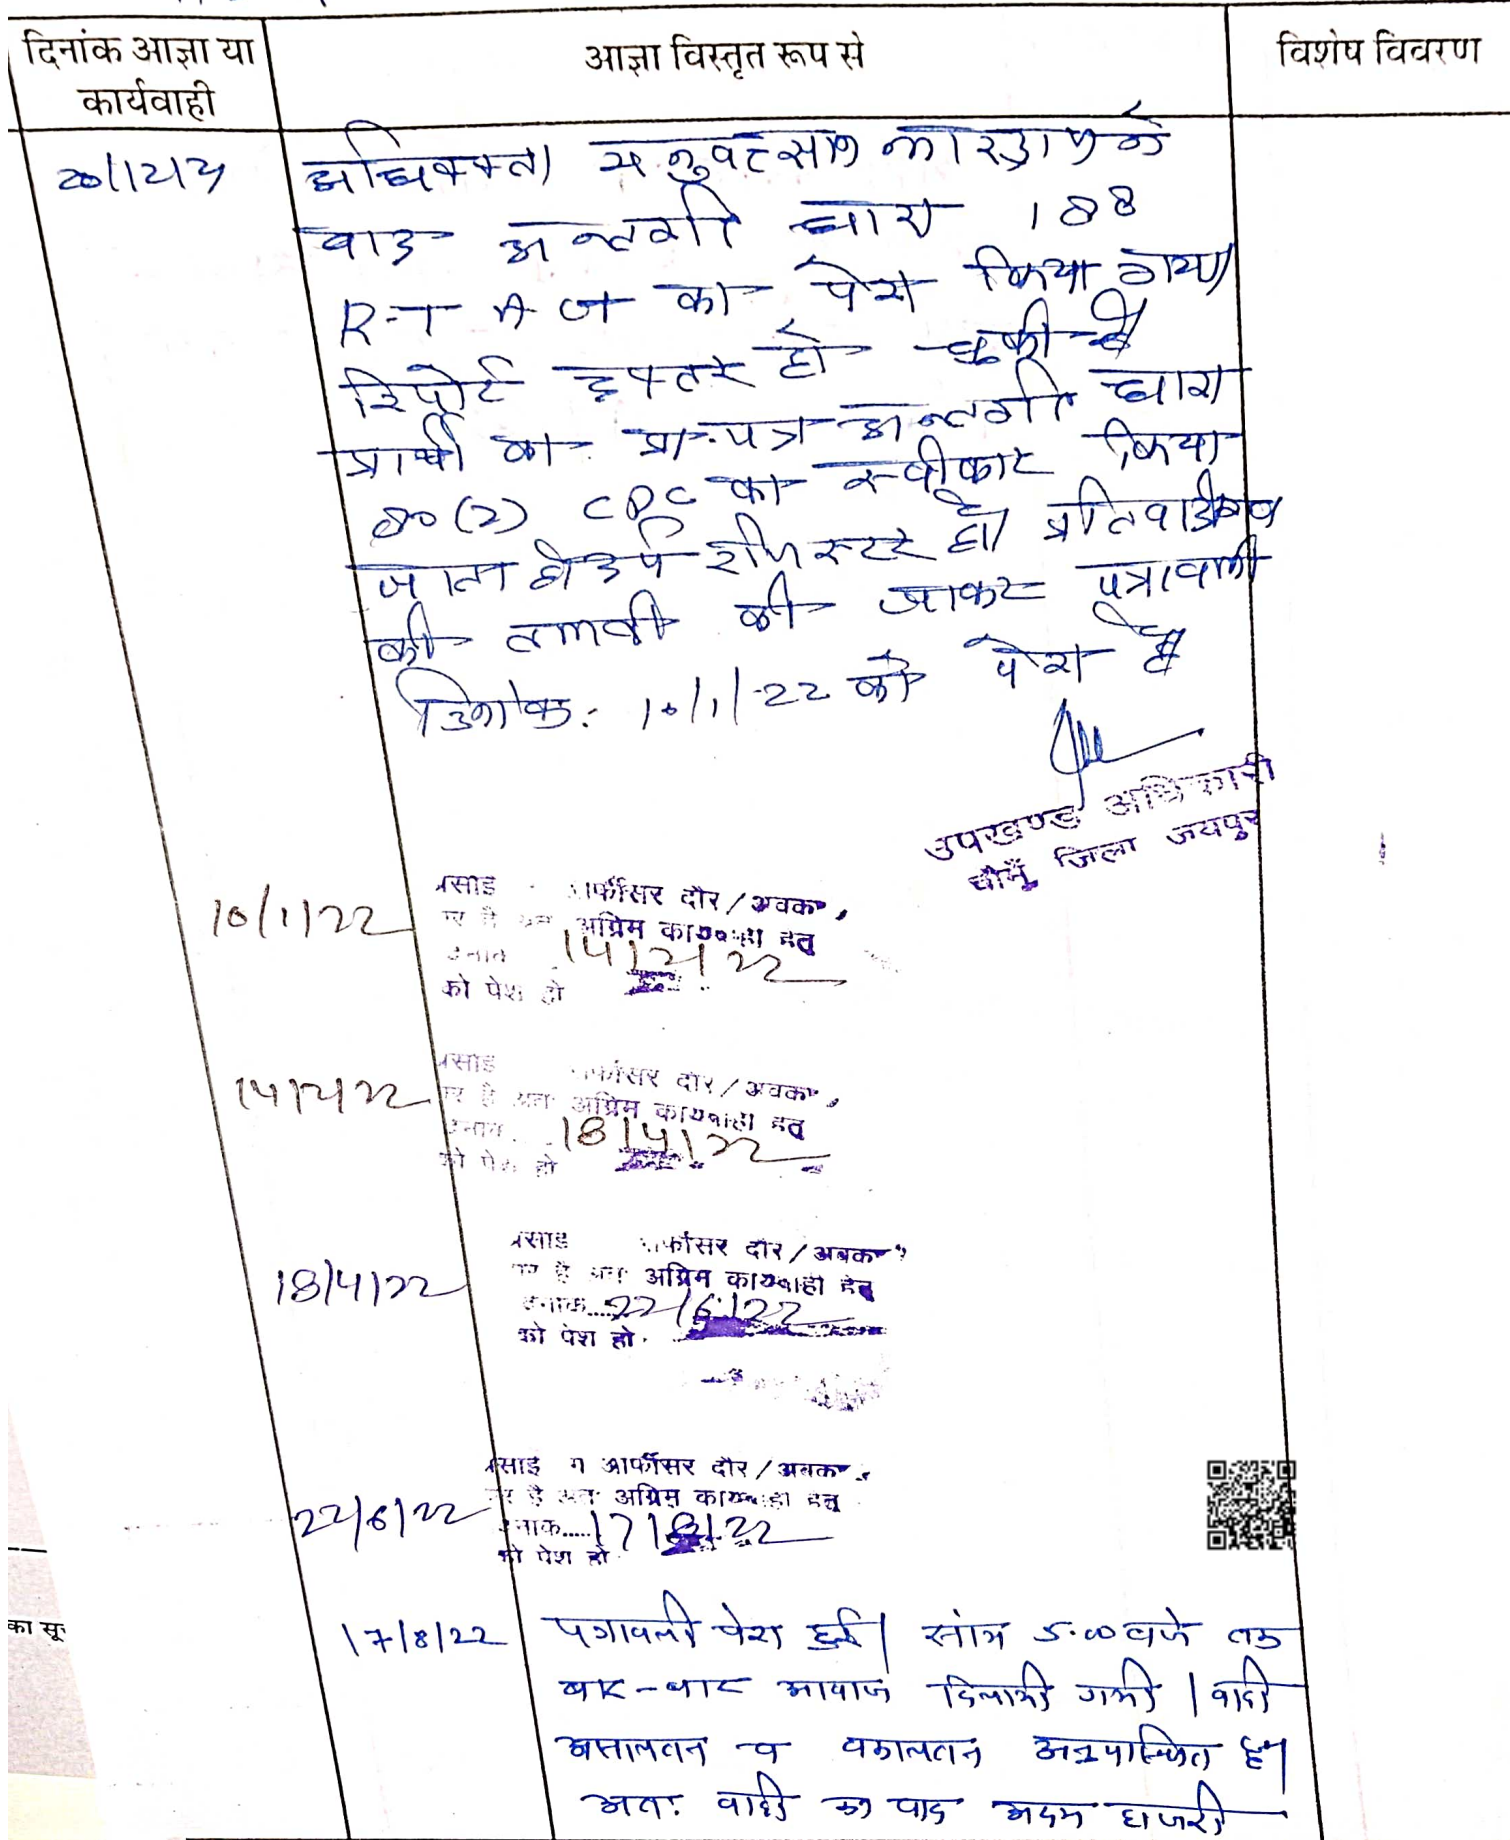 दिनांक आज्ञा या
कार्यवाही
आज्ञा विस्तृत रूप से
विशेष विवरण
वाद अन्तर्गत धारा 188
R-T Act का पेश किया गया
रिपोर्ट दफ्तर हो चुकी है
प्रार्थी का प्रा.पत्र अन्तर्गत धारा
80(2) CPC का स्वीकार किया
जाता है दर्ज रजिस्टर हो
की तलबी की जाकर पत्रावली
दिनांक: 10/1/22 को पेश हो
उपखण्ड अधिकारी
चौमूँ, जिला जयपुर
10/1/22
आफीसर दौर/अवका
है अतः अग्रिम कार्यवाही हेतु
14/2/22
को पेश हो
14/2/22
आफीसर दौर/अवका
है अतः अग्रिम कार्यवाही हेतु
18/4/22
को पेश हो
18/4/22
आफीसर दौर/अवका
है अतः अग्रिम कार्यवाही हेतु
22/6/22
को पेश हो.
22/6/22
आफीसर दौर/अवका
है अतः अग्रिम कार्यवाही हेतु
17/8/22
को पेश हो
का सू
17/8/22
पत्रावली पेश हुई। सांय 5.00 बजे तक
बार-बार आवाज दिलायी गयी। वादी
असालतन व वकालतन अनुपस्थित है।
अतः वादी का वाद अदम हाजरी